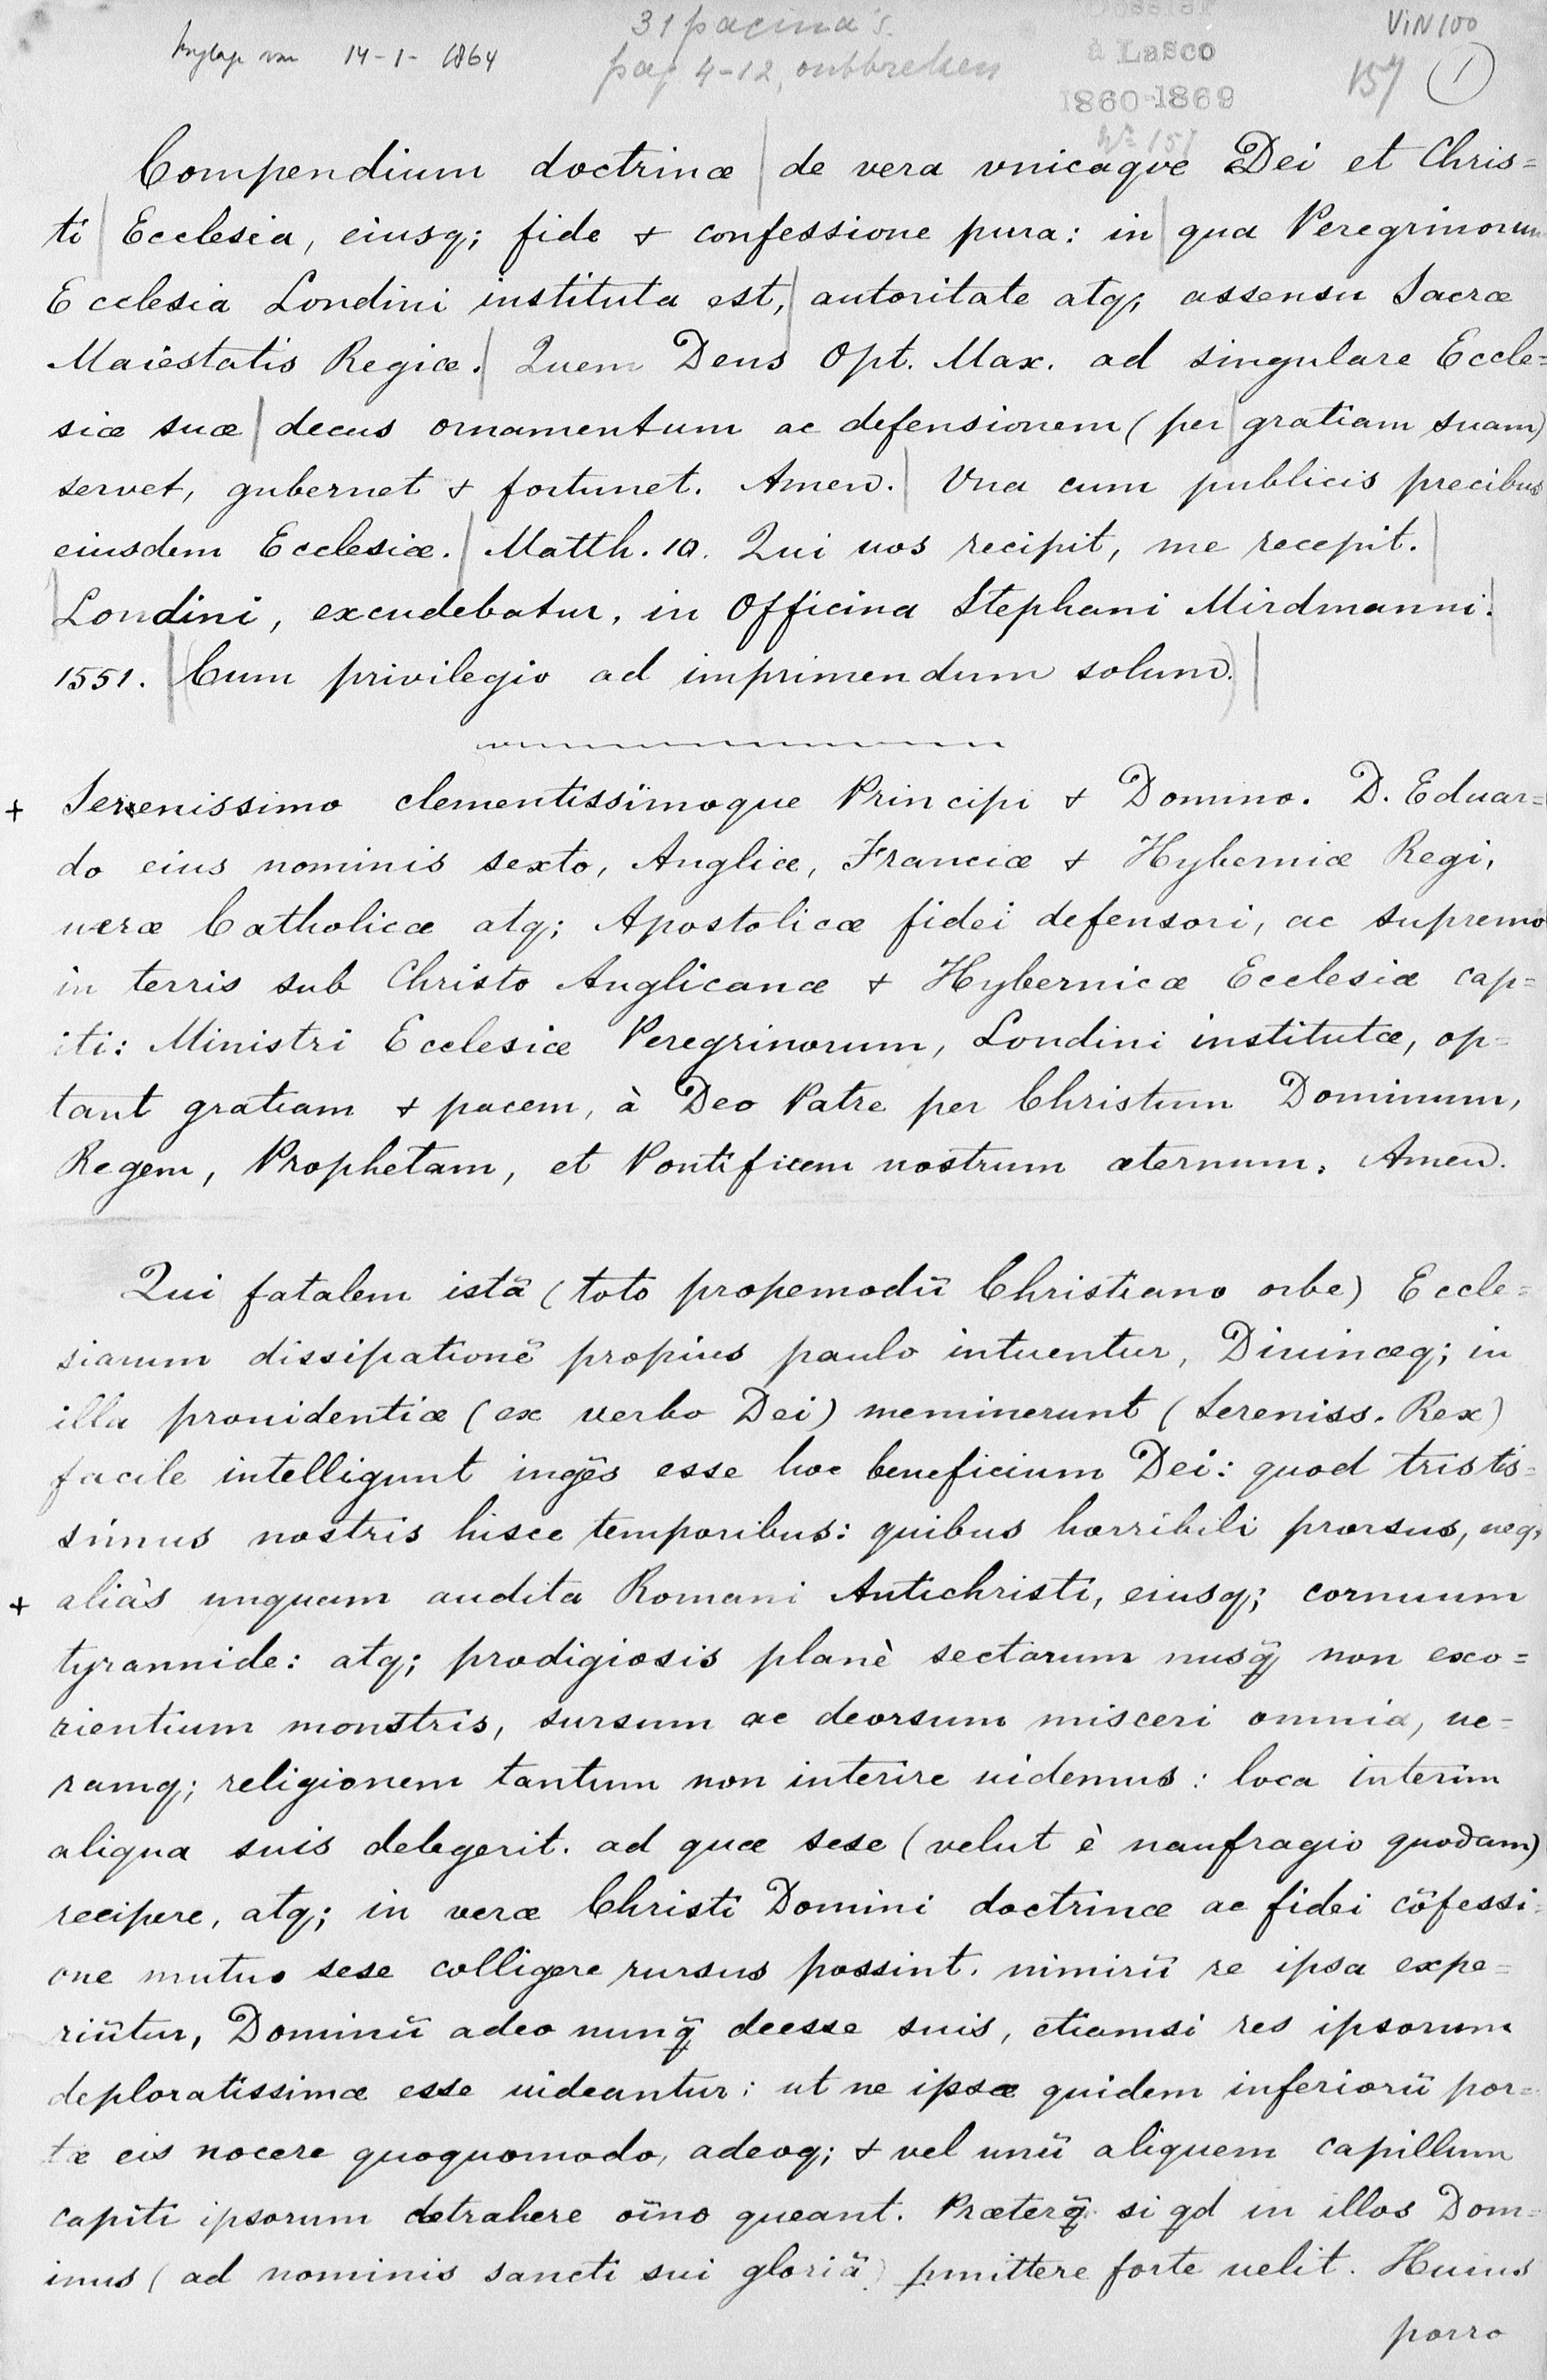 31 pacina's. ViN 100
14-1-1864 à Lasco
pag 4-12, ontbreken 157 1
1860-1869
No 157
Compendium doctrinæ | de vera vnicaqve Dei et Chris=
ti | Ecclesia, eiusq; fide & confessione pura: in | qua Peregrinorum
Ecclesia Londini instituta est, | autoritate atq; assensu Sacræ
Maiestatis Regiæ. | Quem Deus Opt. Max. ad singulare Eccle=
siæ suæ | decus ornamentum ac defensionem (per | gratiam suam)
servet, gubernet & fortunet. Amen. | Vna cum publicis precibus
eiusdem Ecclesiæ. | Matth. 10. Qui uos recipit, me recepit. |
| Londini, excudebatur, in Officina Stephani Mirdmanni. |
1551. | (Cum privilegio ad imprimendum solum.) |
+ Serenissimo clementissimoque Principi & Domino. D. Eduar=
do eius nominis sexto, Angliæ, Franciæ & Hyberniæ Regi,
ueræ Catholicæ atq; Apostolicæ fidei defensori, ac supremo
in terris sub Christo Anglicanæ & Hybernicæ Ecclesiæ cap=
iti: Ministri Ecclesiæ Peregrinorum, Londini institutæ, op=
tant gratiam & pacem, à Deo Patre per Christum Dominum,
Regem, Prophetam, et Pontificem nostrum æternum. Amen.
Qui fatalem istã (toto propemodũ Christiano orbe) Eccle=
siarum dissipationẽ propius paulo intuentur, Diuinæq; in
illa prouidentiæ (ex verbo Dei) meminerunt (Sereniss. Rex)
facile intelligunt ingẽs esse hoc beneficium Dei: quod tristis=
simus nostris hisce temporibus: quibus horribili prorsus, neq;
+ aliàs unquam audita Romani Antichristi, eiusq; cornuum
tyrannide: atq; prodigiosis planè sectarum nusq̃ non exo=
rientium monstris, sursum ac deorsum misceri omnia, ue=
ramq; religionem tantum non interire uidemus: loca interim
aliqua suis delegerit. ad quæ sese (velut è naufragio quodam)
recipere, atq; in veræ Christi Domini doctrinæ ac fidei cõfessi=
one mutuo sese colligere rursus possint. nimirũ re ipsa expe=
riũtur, Dominũ adeo nunq̃ deesse suis, etiamsi res ipsorum
deploratissimæ esse uideantur: ut ne ipsæ quidem inferiorũ por=
tæ eis nocere quoquomodo, adeoq; & vel unũ aliquem capillum
capiti ipsorum detrahere oĩno queant. Præterq̃ si qd in illos Dom=
inus (ad nominis sancti sui gloriã) pmittere forte uelit. Huius
porro